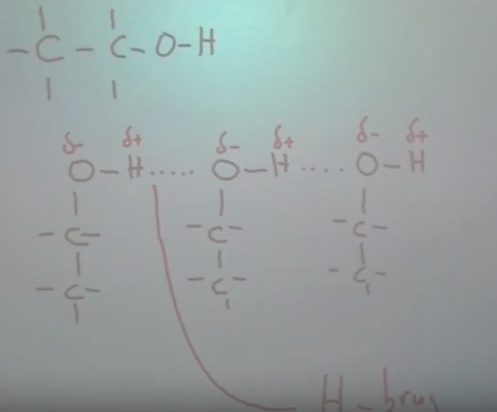 -C-C-O-H
δ- δ+ δ- δ+ δ- δ+
O-H.....O-H....O-H
-C- -C- -C-
-C- -C- -C-
H-brug